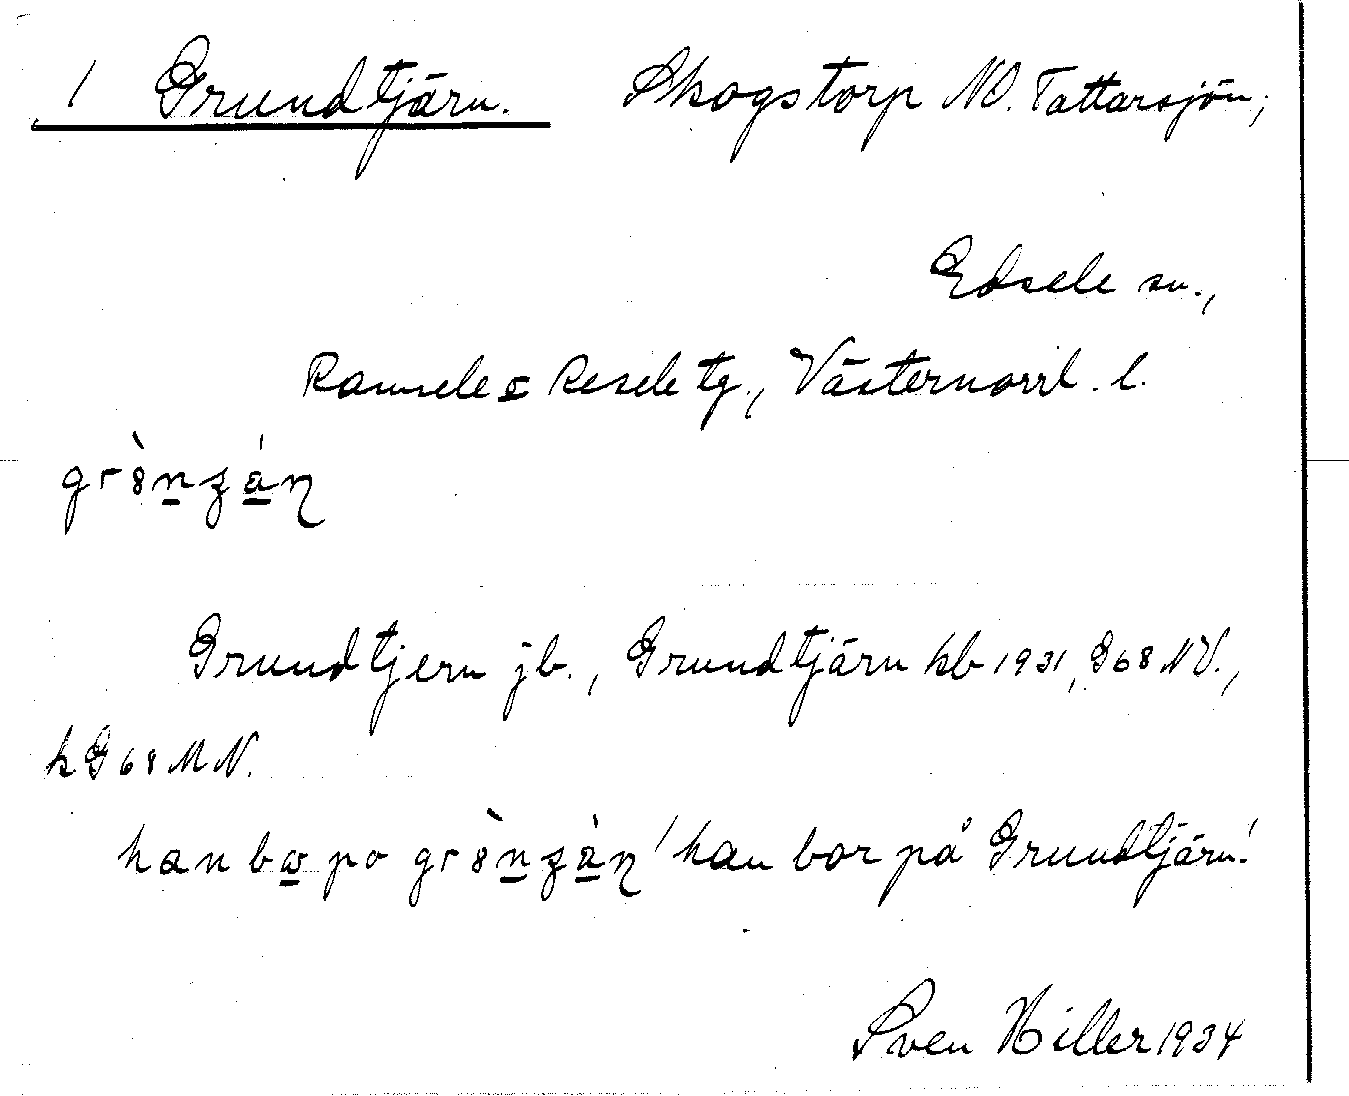 1 Grundtjärn. Skogstorp NO. Tattarsjön;
Edsele sn.,
Ramsele o Resele tg., Västernorrl. l.
grὸnʒán
Grundtjern jb., Grundtjärn kb 1931, G68 NV.,
k G68 M N.
han bω po grὸnʒàn 'han bor på Grundtjärn.'
Sven Hiller 1934